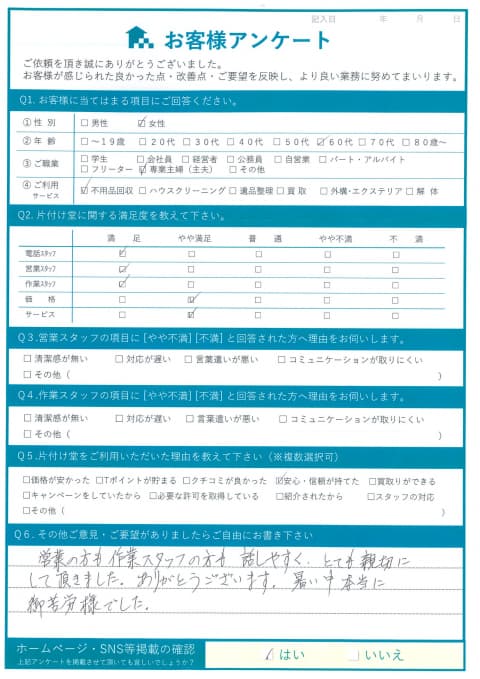 記入日 年 月 日
お客様アンケート
ご依頼を頂き誠にありがとうございました。
お客様が感じられた良かった点・改善点・ご要望を反映し、より良い業務に努めてまいります。
Q1. お客様に当てはまる項目にご回答ください。
① 性 別 □ 男性 ☑ 女性
② 年 齢 □ ～19歳 □ 20代 □ 30代 □ 40代 □ 50代 ☑ 60代 □ 70代 □ 80歳～
③ ご職業 □ 学生 □ 会社員 □ 経営者 □ 公務員 □ 自営業 □ パート・アルバイト
□ フリーター ☑ 専業主婦（主夫） □ その他
④ ご利用サービス ☑ 不用品回収 □ ハウスクリーニング □ 遺品整理 □ 買取 □ 外構・エクステリア □ 解体
Q2. 片付け堂に関する満足度を教えて下さい。
満 足 やや満足 普 通 やや不満 不 満
電話スタッフ ☑ □ □ □ □
営業スタッフ ☑ □ □ □ □
作業スタッフ ☑ □ □ □ □
価 格 □ ☑ □ □ □
サービス □ ☑ □ □ □
Q3.営業スタッフの項目に [やや不満] [不満] と回答された方へ理由をお伺いします。
□ 清潔感が無い □ 対応が遅い □ 言葉遣いが悪い □ コミュニケーションが取りにくい
□ その他（ ）
Q4.作業スタッフの項目に [やや不満] [不満] と回答された方へ理由をお伺いします。
□ 清潔感が無い □ 対応が遅い □ 言葉遣いが悪い □ コミュニケーションが取りにくい
□ その他（ ）
Q5.片付け堂をご利用いただいた理由を教えて下さい（※複数選択可）
□価格が安かった □Tポイントが貯まる □クチコミが良かった ☑安心・信頼が持てた □買取りができる
□キャンペーンをしていたから □必要な許可を取得している □紹介されたから □スタッフの対応
□その他（ ）
Q6.その他ご意見・ご要望がありましたらご自由にお書き下さい
営業の方も作業スタッフの方も 話しやすく、とても親切に
して頂きました。ありがとうございます。暑い中本当に
御苦労様でした。
ホームページ・SNS等掲載の確認 ☑ はい □ いいえ
上記アンケートを掲載させて頂いても宜しいでしょうか？